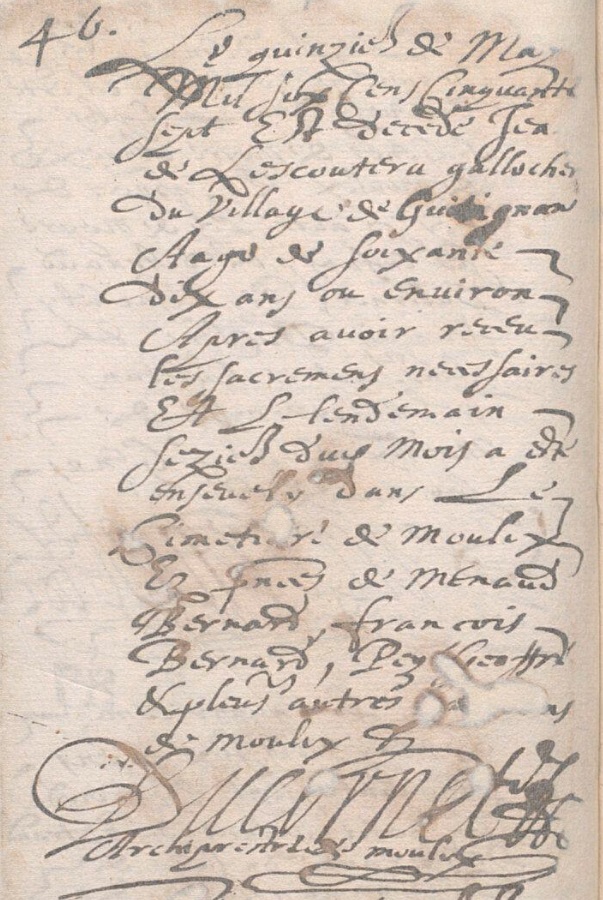 46.
Le quinzieh de May
Mil six Cens Cinquante
sept Est decede Jea
de Lescoutera gallocher
du Village de Guitignan
Aage de soixante
dix ans ou environ
Apres avoir receu
les sacremens necessaires
Et L lendemain
sezieh dud Mois a este
ensevely dans Le
Cimetiere de Moulix
Ez pnces de Menaud
Bernard, francois
Bernard, Pey Geoffre
& pleurs autres
de Moulix
Archiprestre de moulix